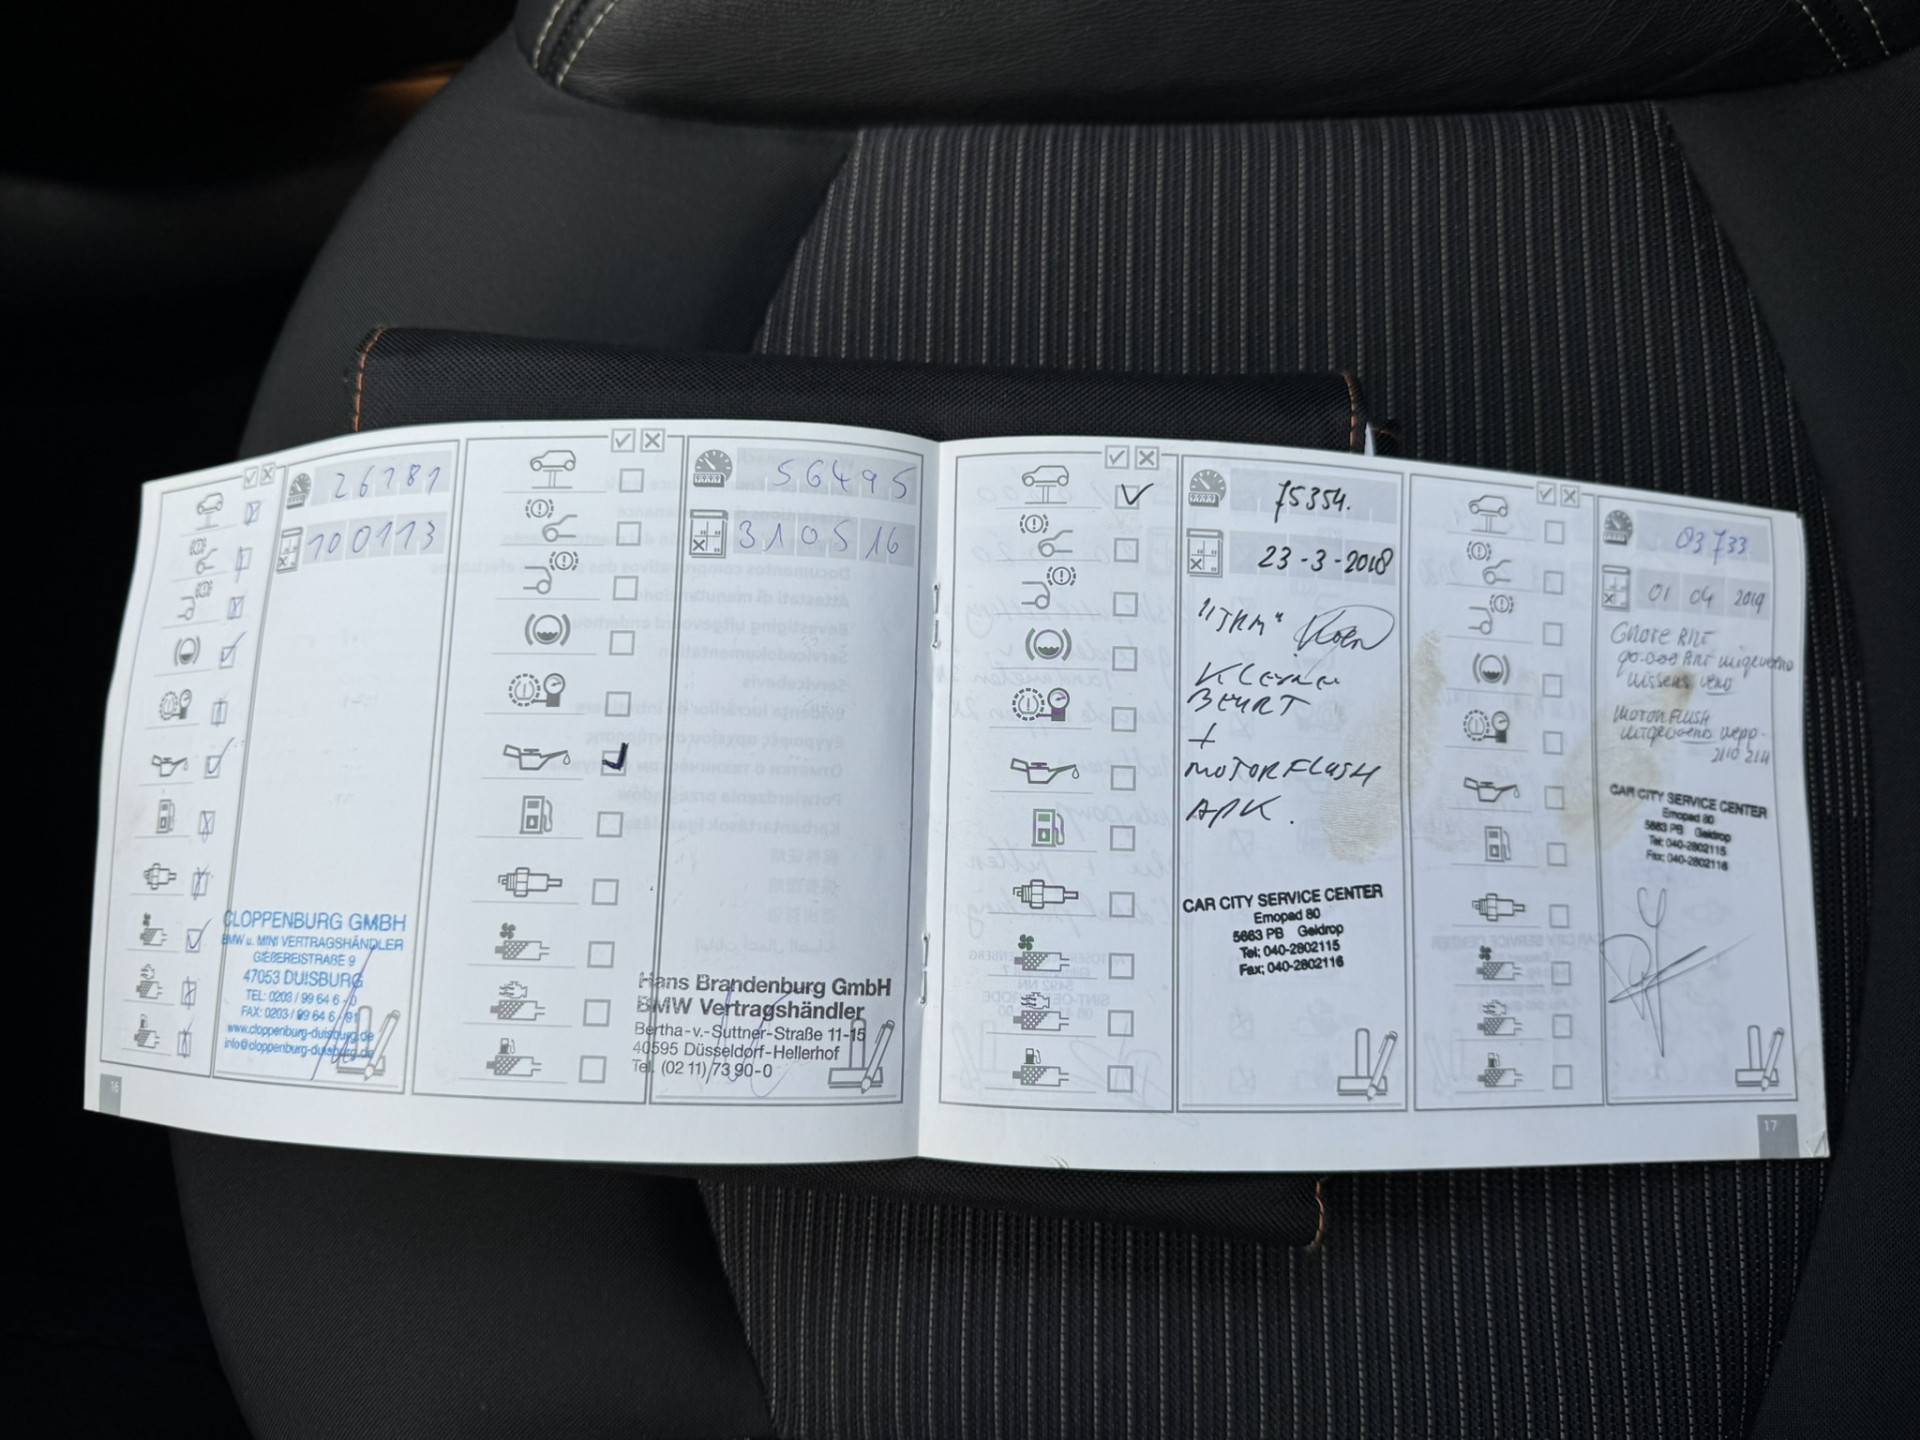 26181
100113
CLOPPENBURG GMBH
BMW u. MINI VERTRAGSHÄNDLER
GIEßEREISTRAßE 9
47053 DUISBURG
TEL: 0203 / 99 64 6 - 0
FAX: 0203 / 99 64 6 - 91
www.cloppenburg-duisburg.de
info@cloppenburg-duisburg.de
16
56495
310516
Hans Brandenburg GmbH
BMW Vertragshändler
Bertha-v.-Suttner-Straße 11-15
40595 Düsseldorf-Hellerhof
Tel. (02 11) 73 90-0
75354.
23-3-2018
KLEINE
BEURT
+
MOTORFLUSH
APK.
CAR CITY SERVICE CENTER
Emopad 80
5663 PB Geldrop
Tel: 040-2802115
Fax: 040-2802116
83733
01 04 2019
GROTE
90.000
MOTORFLUSH
CAR CITY SERVICE CENTER
Emopad 80
5663 PB Geldrop
Tel: 040-2802115
Fax: 040-2802116
17